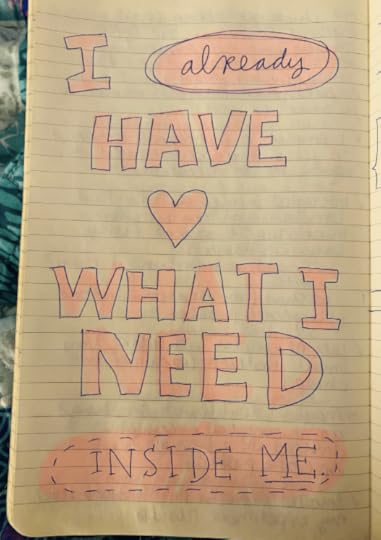 I already
HAVE
WHAT I
NEED
INSIDE ME.